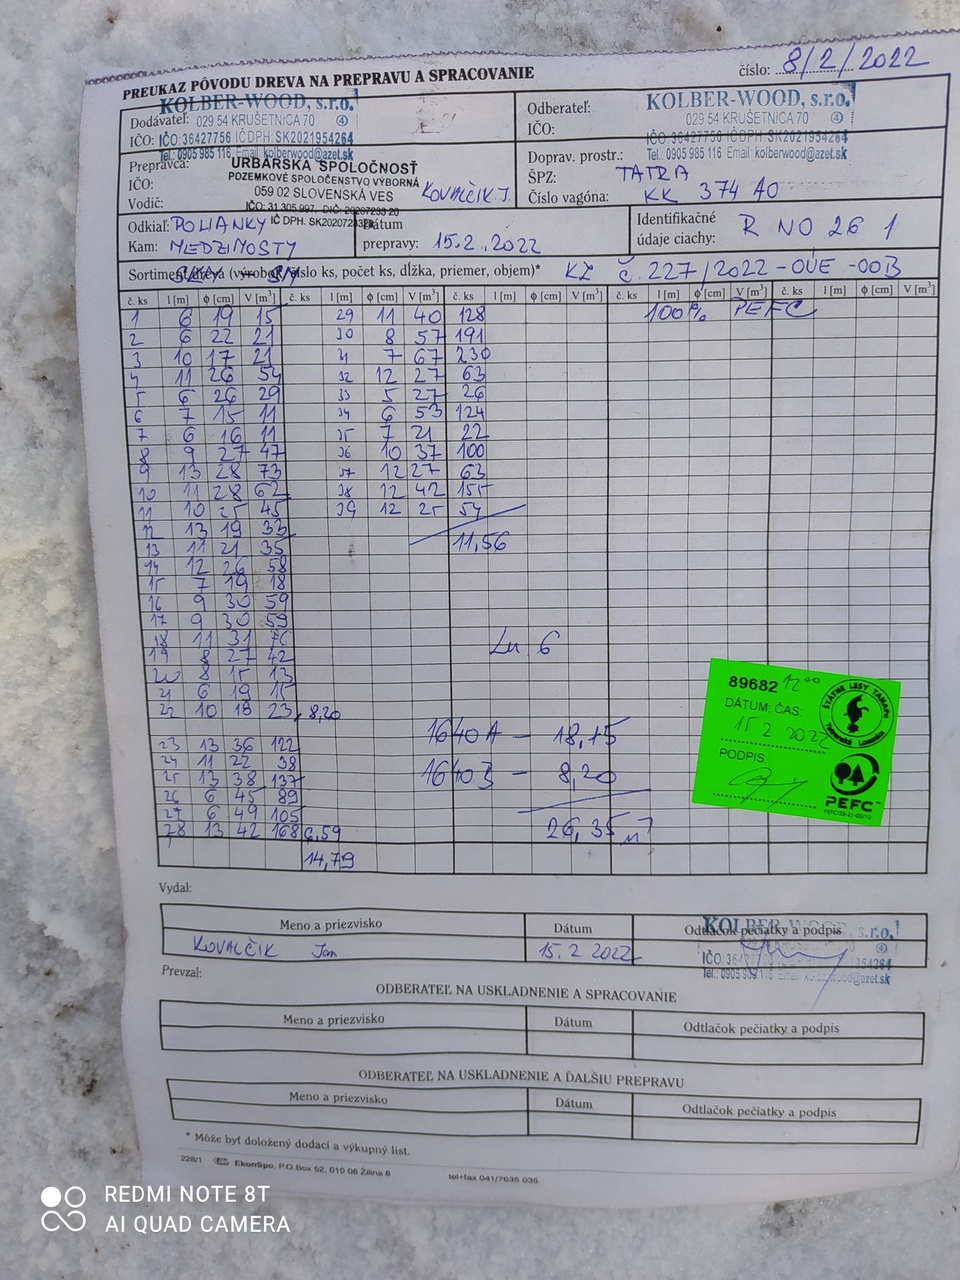 PREUKAZ PÔVODU DREVA NA PREPRAVU A SPRACOVANIE
číslo: 8/2/2022
Dodávateľ:
IČO:
KOLBER-WOOD, s.r.o.
029 54 KRUŠETNICA 70 4
IČO:36427756 IČDPH:SK2021954264
Tel.: 0905 985 116 Email: kolberwood@azet.sk
Odberateľ:
IČO:
KOLBER-WOOD, s.r.o.
029 54 KRUŠETNICA 70 4
IČO:36427756 IČDPH:SK2021954264
Tel.: 0905 985 116, Email: kolberwood@azet.sk
Prepravca:
IČO:
Vodič: KOVALČIK J.
URBÁRSKA SPOLOČNOSŤ
POZEMKOVÉ SPOLOČENSTVO VÝBORNÁ
059 02 SLOVENSKÁ VES
IČO: 31 305 997, DIČ: 20207233 20
IČ DPH: SK2020723320
Doprav. prostr.: TATRA
ŠPZ:
Číslo vagóna: KK 374 AO
Odkiaľ: POLIANKY
Kam: MEDZIMOSTY
Dátum
prepravy: 15.2.2022
Identifikačné
údaje ciachy: R NO 26 1
Sortiment dreva (výrobok, číslo ks, počet ks, dĺžka, priemer, objem)* KZ č. 227/2022-OUE-00B
č. ks l [m] ϕ [cm] V [m³] č. ks l [m] ϕ [cm] V [m³] č. ks l [m] ϕ [cm] V [m³] č. ks l [m] ϕ [cm] V [m³] č. ks l [m] ϕ [cm] V [m³]
1 6 19 15 29 11 40 128 100% PEFC
2 6 22 21 30 8 57 191
3 10 17 21 31 7 67 230
4 11 26 54 32 12 27 63
5 6 26 29 33 5 27 26
6 7 15 11 34 6 53 124
7 6 16 11 35 7 21 22
8 9 27 47 36 10 37 100
9 13 28 73 37 12 27 63
10 11 28 62 38 12 42 155
11 10 25 45 39 12 25 54
12 13 19 33
13 11 21 35 11,56
14 12 26 58
15 7 19 18
16 9 30 59
17 9 30 59
18 11 31 76
19 8 27 42
20 8 15 13
21 6 19 15
22 10 18 23 8,20
23 13 36 122
24 11 22 38
25 13 38 137
26 6 45 89
27 6 49 105
28 13 42 168 6,59
14,79
6
1640A - 18,15
1640B - 8,20
26,35 m³
89682 12⁰⁰
DÁTUM: ČAS:
15 2 2022
PODPIS:
ŠTÁTNE LESY TANAPu
Tatranská Lomnica
PEFC™
Vydal:
Meno a priezvisko Dátum Odtlačok pečiatky a podpis
KOVALČIK Jan 15.2 2022
KOLBER-WOOD, s.r.o.
Prevzal:
ODBERATEĽ NA USKLADNENIE A SPRACOVANIE
Meno a priezvisko Dátum Odtlačok pečiatky a podpis
ODBERATEĽ NA USKLADNENIE A ĎALŠIU PREPRAVU
Meno a priezvisko Dátum Odtlačok pečiatky a podpis
* Môže byť doložený dodací a výkupný list.
228/1 EkonSpo. P.O.Box 52, 010 08 Žilina 8 tel+fax 041/7635 035
REDMI NOTE 8T
AI QUAD CAMERA